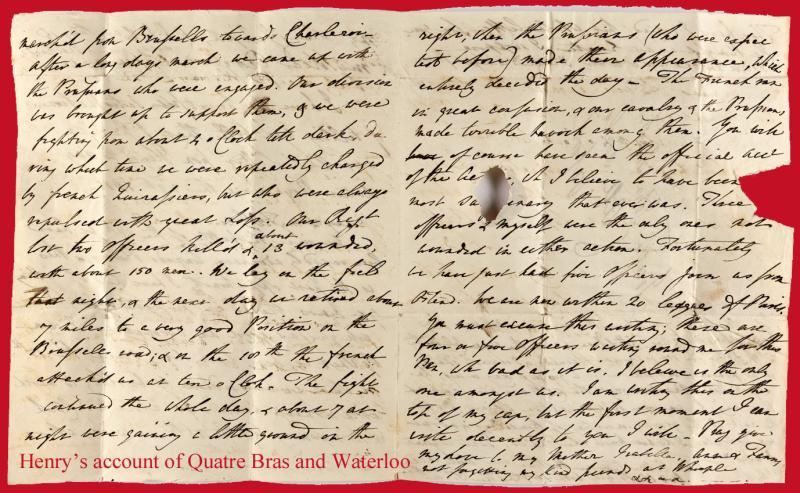 march'd from Brussells towards Charleroi
after a long days march we came up with
the Prussians who were engaged. Our division
was brought up to support them, & we were
fighting from about 4 oClock till dark, du
ring which time we were repeatedly charged
by french Cuirassiers, but who were always
repulsed with great Loss. Our Regt
lost two officers kill'd & about 13 wounded.
with about 150 men. We lay on the field
that night, & the next day we retired about
7 miles to a very good Position on the
Brussells road; & on the 18th the french
attack'd us at ten oCloh. The fight
continued the whole day, & about 7 at
night were gaining a little ground on the
right, when the Prussians (who were expec
ted before) made their appearance, which
entirely decided the day – The French ran
in great confusion, & our cavalry & the Prussians
made terrible havock among them. You will
of course have seen the official acct
of the I believe to have been
most that ever was. Three
officers & myself were the only ones not
wounded in either action. Fortunately
we have just had five Officers join us from
Ostend. We are now within 20 leagues of Paris.
You must excuse this writing; there are
four or five Officers writing round me for this
Pen, wh bad as it is, I believe is the only
one amongst us. I am writing this on the
top of my cap, but the first moment I can
write decently to you I will – Pray give
my love to my Mother Isabella, Anna & Fanny
not forgetting my kind friends at
Henry's account of Quatre Bras and Waterloo